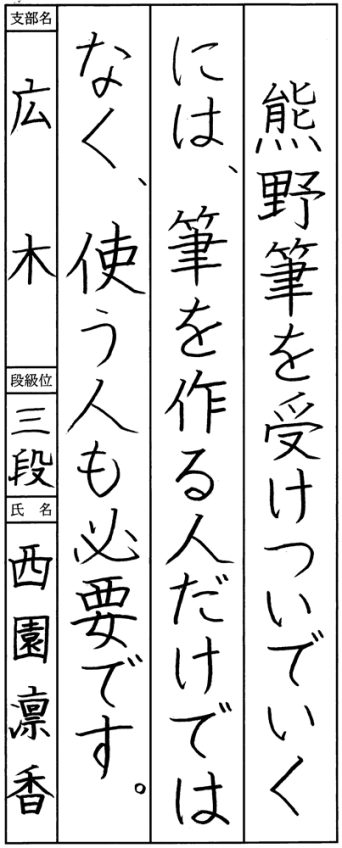 熊野筆を受けついでいく
には、筆を作る人だけでは
なく、使う人も必要です。
支部名
広木
段級位
三段
氏名
西園凛香